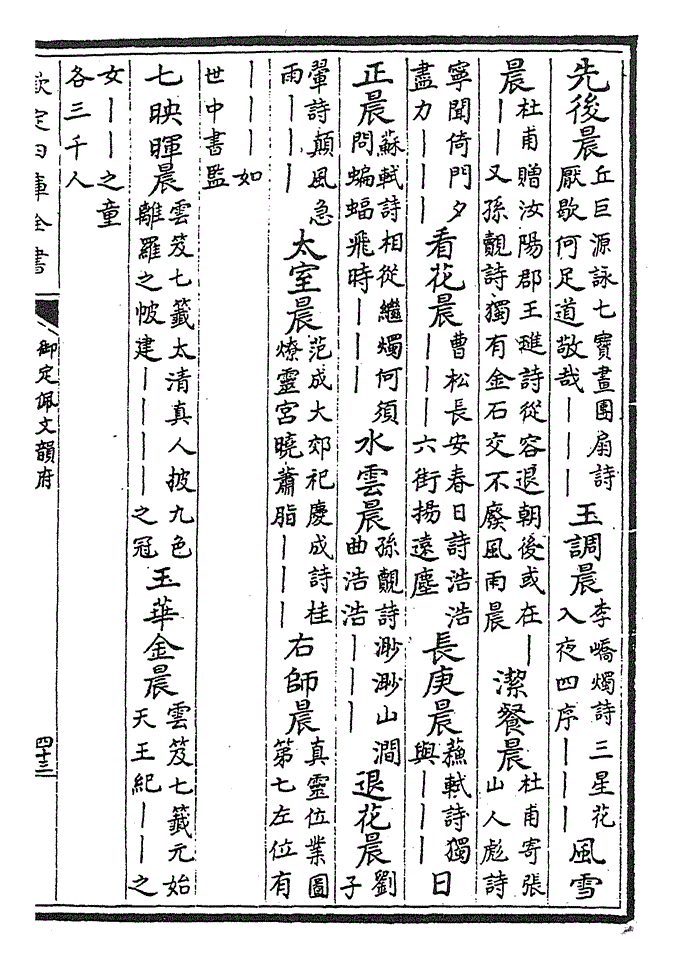 先後晨丘巨源詠七寶畫團扇詩厭歇何足道敬哉丨丨丨玉調晨李嶠燭詩三星花入夜四序丨丨丨風雪
晨杜甫贈汝陽郡王璡詩從容退朝後或在丨丨丨又孫覿詩獨有金石交不廢風雨晨潔餐晨杜甫寄張山人彪詩
寧聞倚門夕盡力丨丨丨看花晨曹松長安春日詩浩浩丨丨丨六街揚遠塵長庚晨蘓軾詩獨與丨丨丨日
正晨蘇軾詩相從繼燭何須問蝙蝠飛時丨丨丨水雲晨孫覿詩渺渺山澗曲浩浩丨丨丨退花晨劉子
翬詩顛風急雨丨丨丨太室晨范成大郊祀慶成詩桂燎靈宮曉蕭脂丨丨丨右師晨真靈位業圖第七左位有
丨丨丨如世中書監
七映暉晨雲笈七籤太清真人披九色離羅之帔建丨丨丨丨之冠玉華金晨雲笈七籤元始天王紀丨丨之
女丨丨之童各三千人
欽定四庫全書
御定佩文韻府
四十三